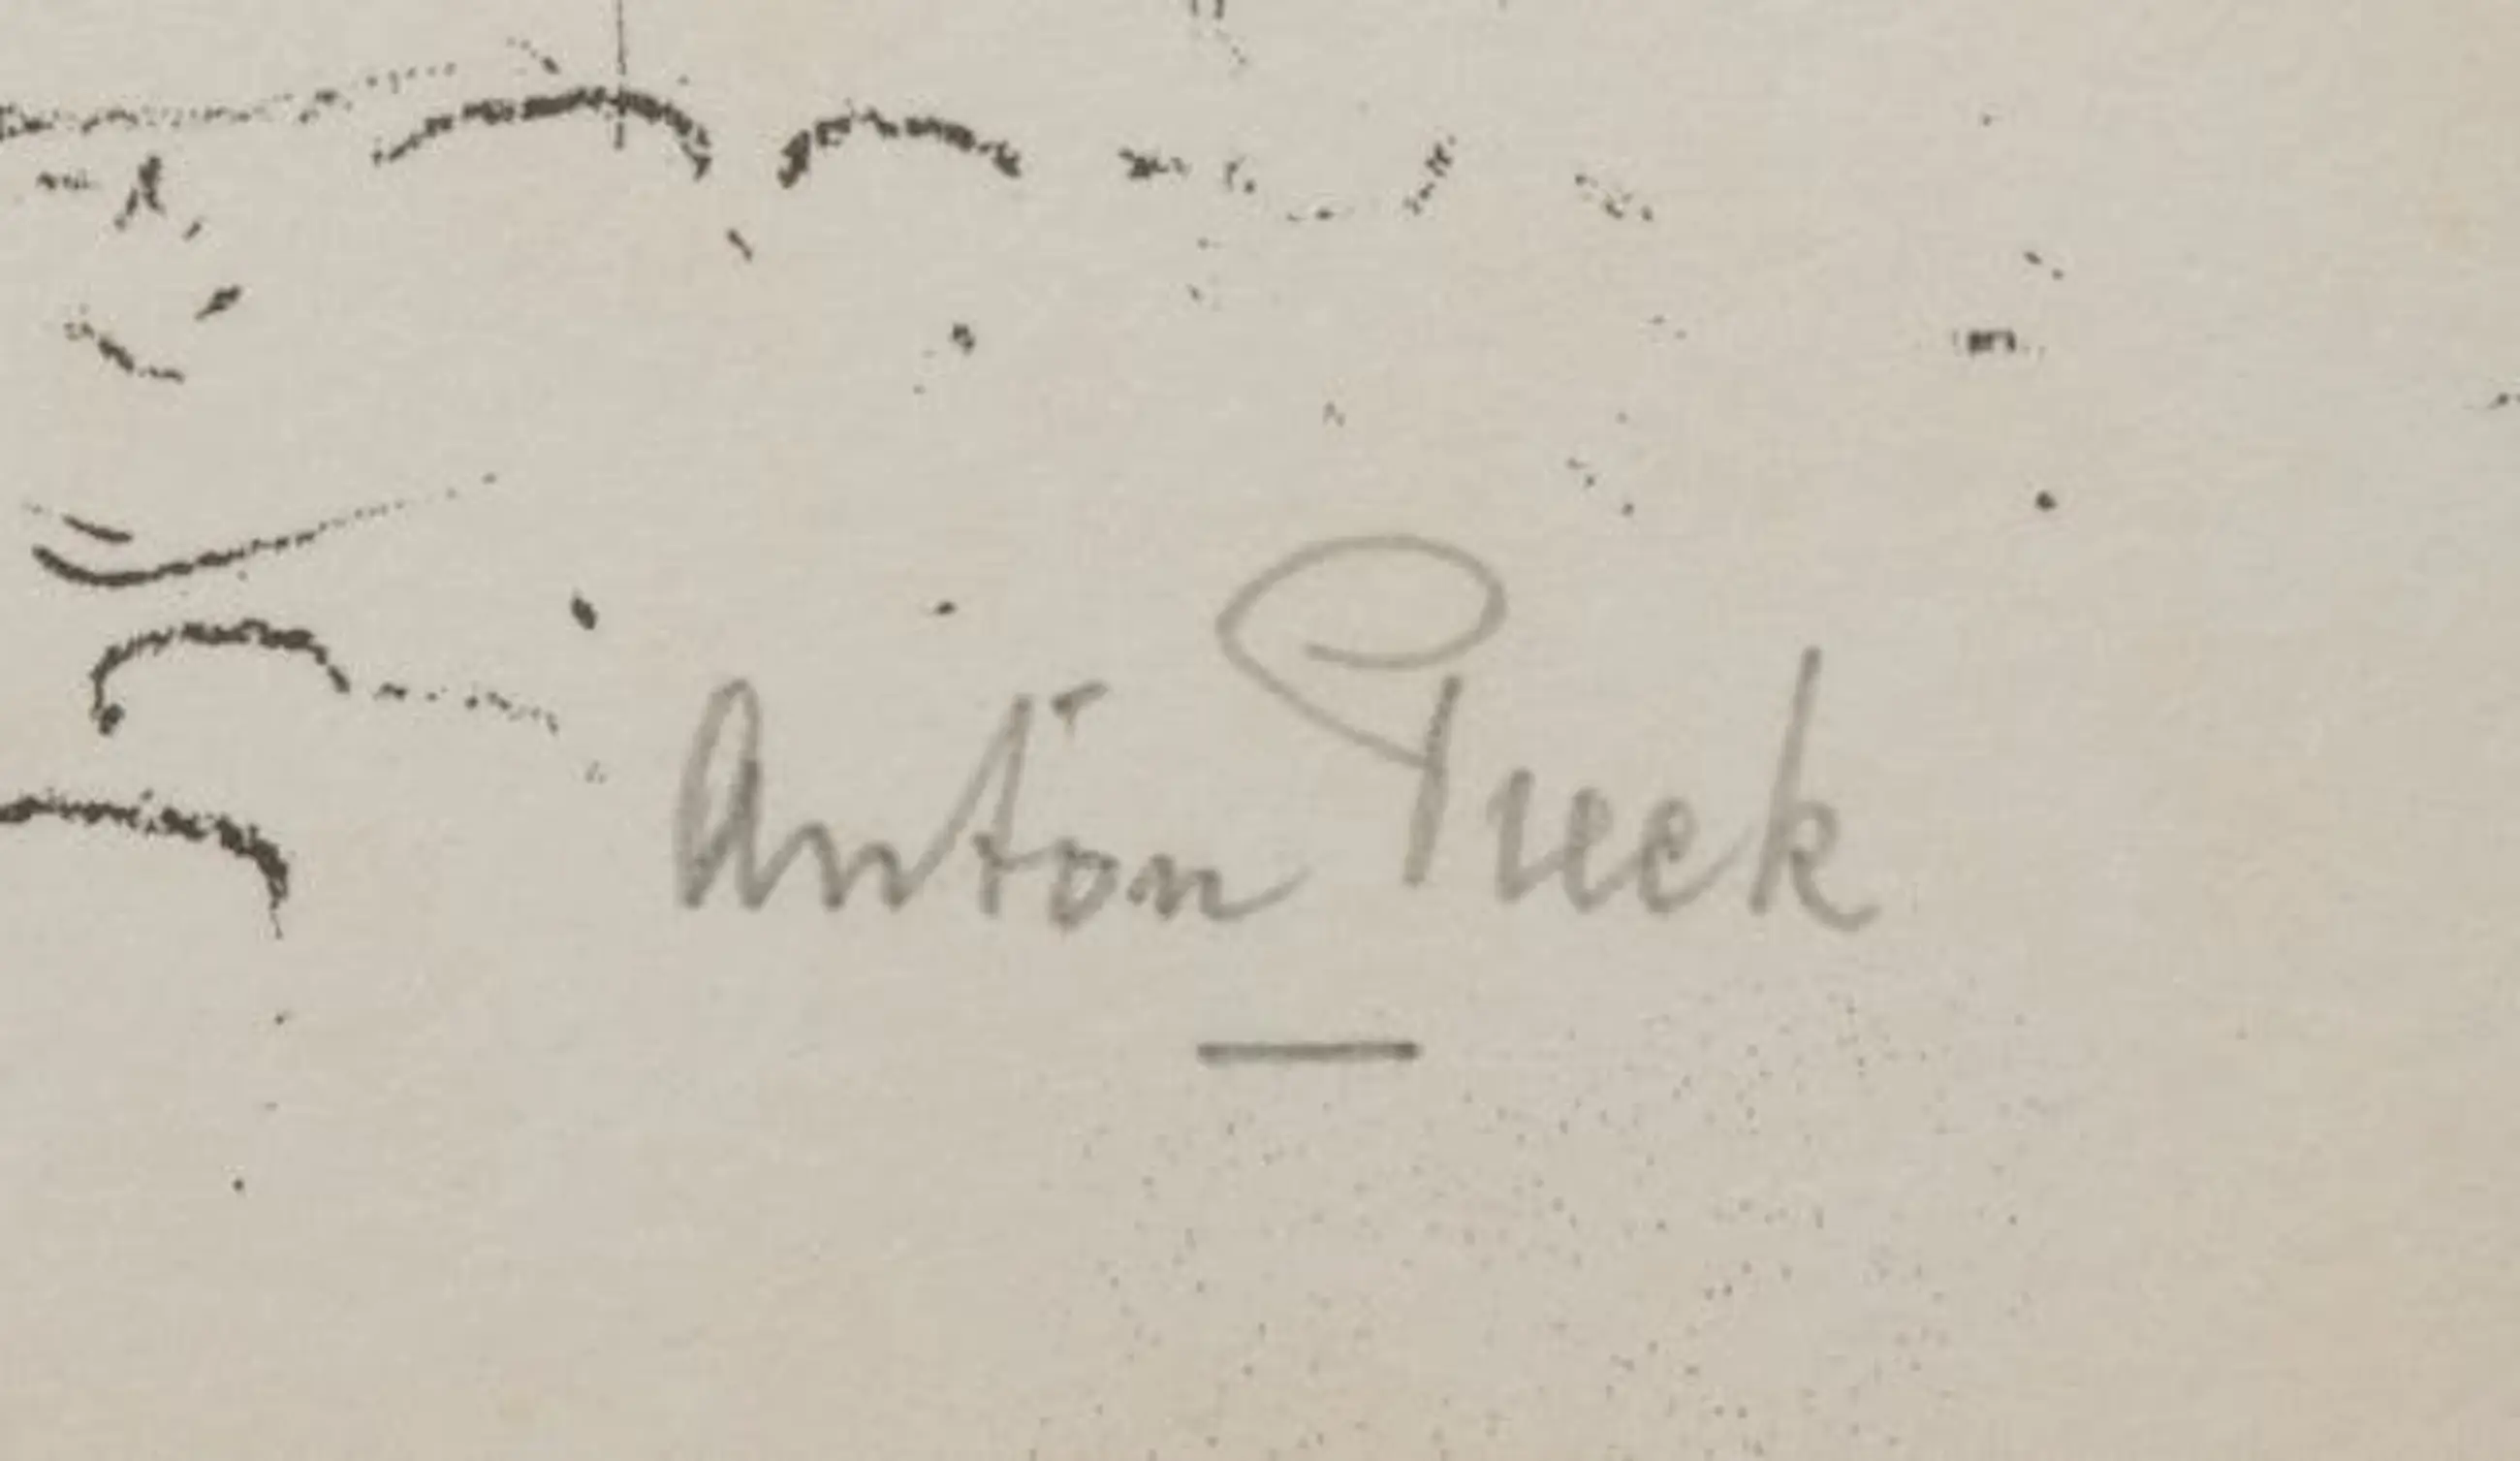 Anton Pieck